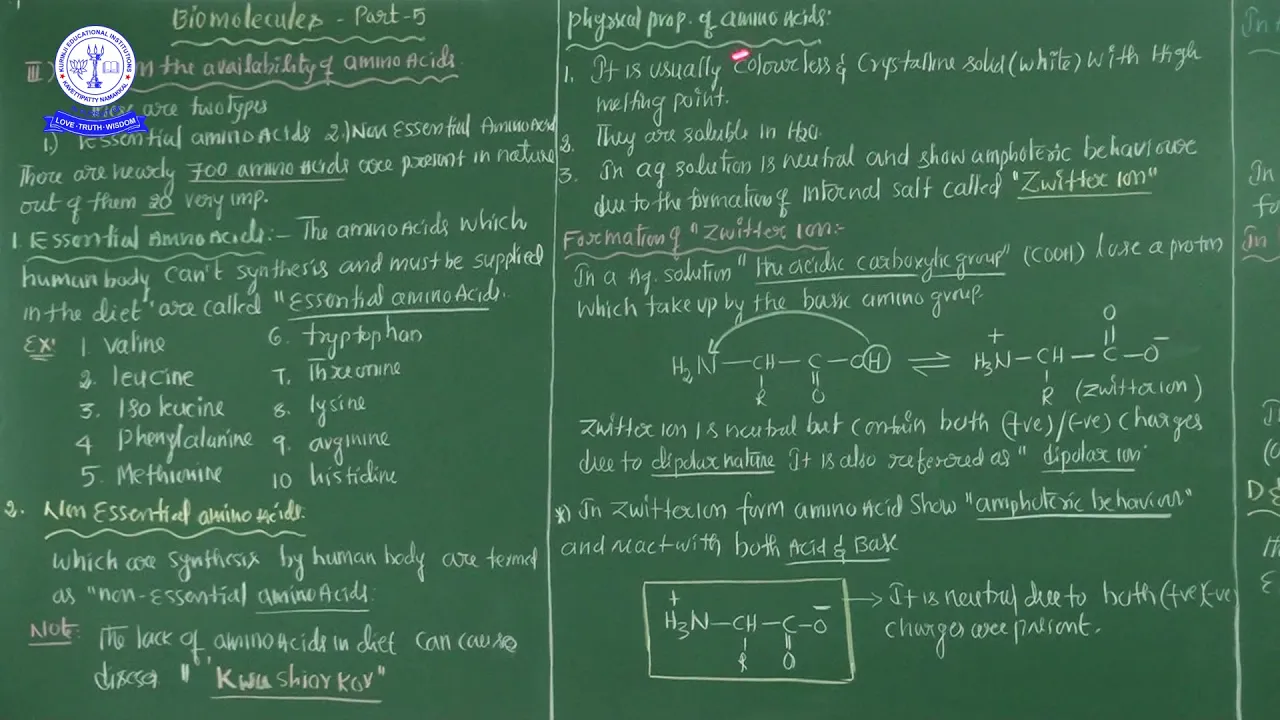 Biomolecules - Part-5
III) in the availability of amino Acids.
These are two types
1.) Essential amino Acids 2.) Non Essential Amino Acid
There are nearly 700 amino Acids are present in nature
out of them 20 very imp.
1. Essential Amino Acids:- The amino Acids which
human body can't synthesis and must be supplied
in the diet" are called "Essential amino Acids.
Ex:
1. Valine
2. leucine
3. Iso leucine
4 Phenylalanine
5. Methionine
6. tryptophan
7. Threonine
8. lysine
9. arginine
10 histidine
2. Non Essential amino Acids:
Which are synthesis by human body are termed
as "non-Essential amino Acids:
Note: The lack of amino Acids in diet can cause
" Kwashiorkor"
Physical prop. of amino Acids:
1. It is usually Colourless & Crystalline solid (white) with High
melting point.
2. They are soluble in H2O.
3. In aq solution is neutral and show amphoteric behaviour
due to the formation of internal salt called "Zwitter ion"
Formation of "Zwitter ion:-
In a Aq. solution "the acidic carboxylic group" (COOH) lose a proton
which take up by the basic amino group.
H2N — CH — C — OH ⇌ H3N — CH — C — O
+ O −
R O R (Zwitter ion)
Zwitter ion is neutral but contain both (+ve)/(-ve) charges
due to dipolar nature It is also referred as " dipolar ion.
*) In Zwitter ion form amino Acid show "amphoteric behaviour"
and react with both Acid & Base
+ −
H3N — CH — C — O
R O
→ It is neutral due to both (+ve)(-ve
charges are present.
KURINJI EDUCATIONAL INSTITUTIONS
KAVETTIPATTY NAMAKKAL
LOVE - TRUTH - WISDOM